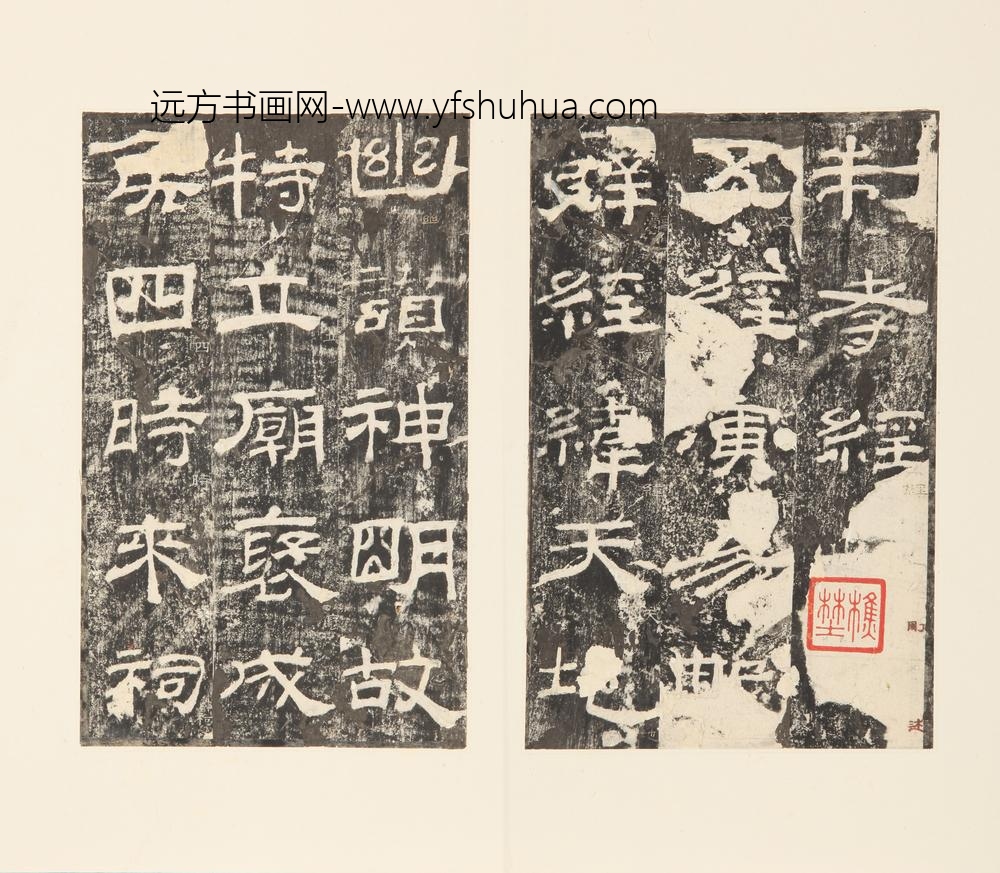 远方书画网-www.yfshuhua.com
制孝經
刪述
樵埜
五經演易繫
辭經緯天地
幽讚神明故
特立廟褒成
侯四時來祠